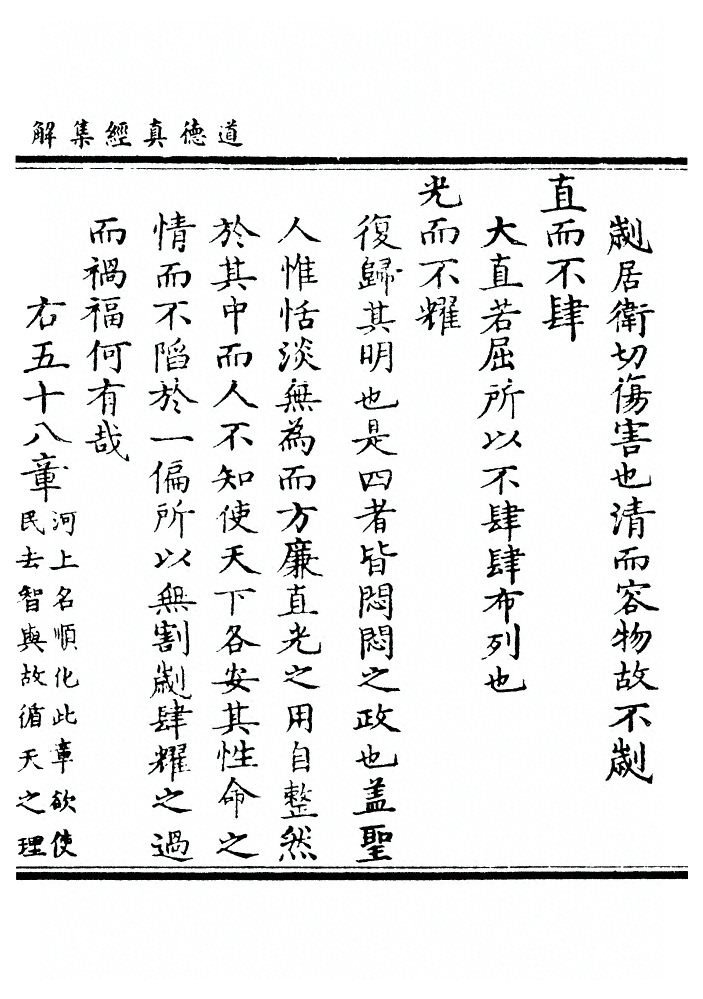 道德真經集解
劌居衛切傷害也清而容物故不劌
直而不肆
大直若屈所以不肆肆布列也
光而不耀
復歸其明也是四者皆悶悶之政也盖聖
人惟恬淡無為而方廉直光之用自整然
於其中而人不知使天下各安其性命之
情而不陷於一偏所以無割劌肆耀之過
而禍福何有哉
右五十八章
河上名順化此章欲使
民去智與故循天之理